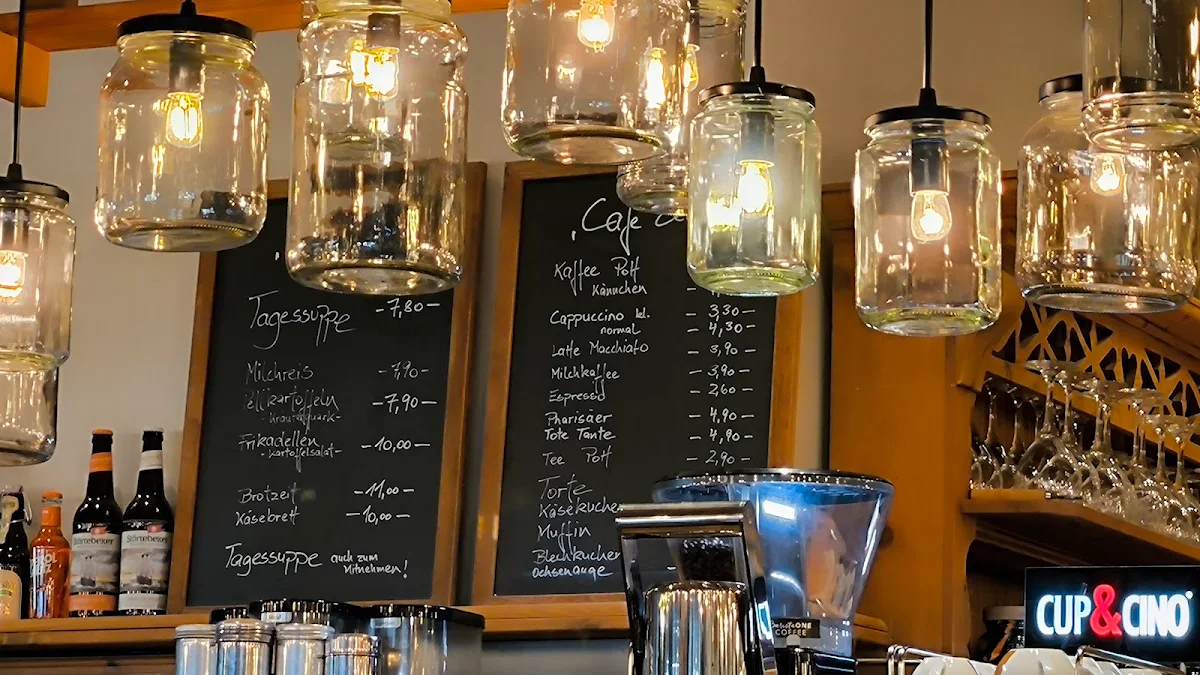 Tagessuppe -7,80-
Milchreis -7,90-
Pellkartoffeln -7,90-
-Kräuterquark-
Frikadellen -10,00-
-Kartoffelsalat-
Brotzeit -11,00-
Käsebrett -10,00-
Tagessuppe auch zum
Mitnehmen!
Café
Kaffee Pott
Kännchen
Cappuccino kl. - 3,30-
normal - 4,30-
Latte Macchiato - 3,90-
Milchkaffee - 3,90-
Espresso - 2,60-
Pharisäer - 4,90-
Tote Tante - 4,90-
Tee Pott - 2,90-
Torte
Käsekuchen
Muffin
Blechkuchen
Ochsenauge
Störtebeker
Störtebeker
baristaONE
COFFEE
CUP&CINO